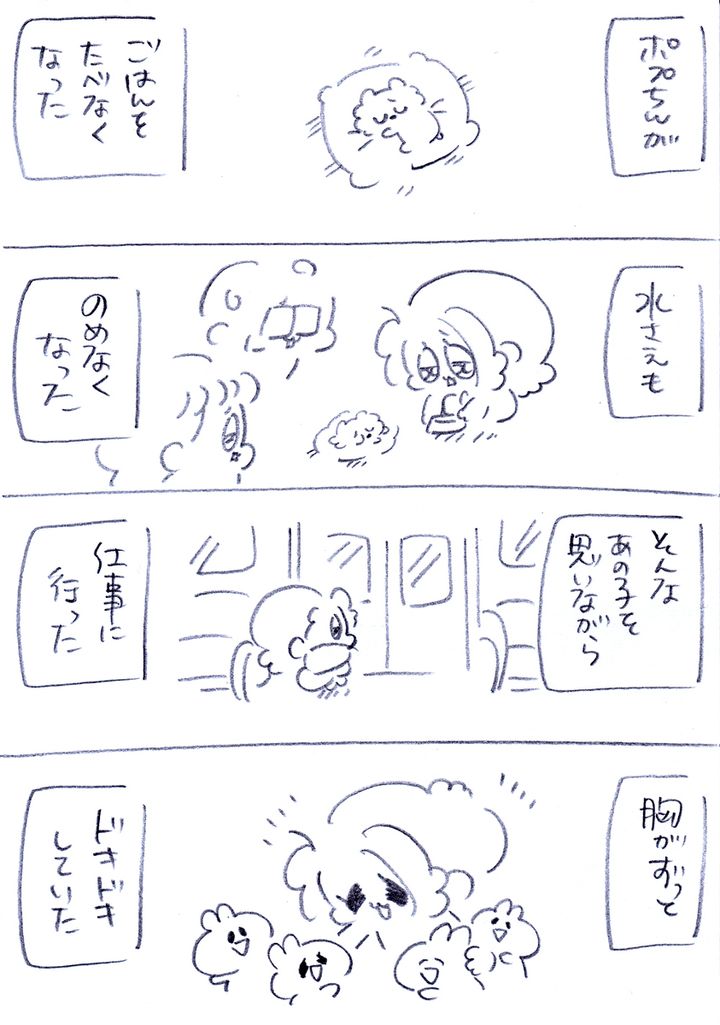 ポプちんが
ごはんを
たべなく
なった
水さえも
のめなく
なった
そんな
あの子を
思いながら
仕事に
行った
胸がずっと
ドキドキ
していた